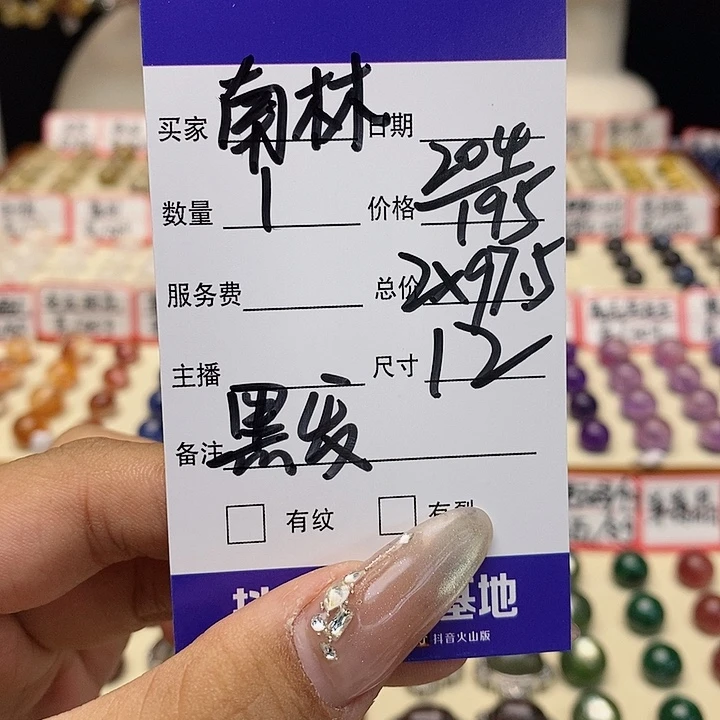 买家 南林 日期
数量 1 价格 204
195
服务费 总价 2x97.5
主播 尺寸 12
备注 黑发
有纹 有裂
基地
抖音火山版